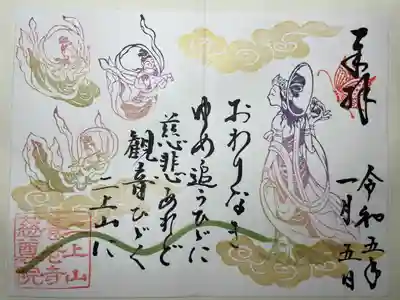 奉拝
令和五年
一月五日
おわりなき
ゆめ追うひびに
慈悲あれど
観音ひびく
二上山に
二上山